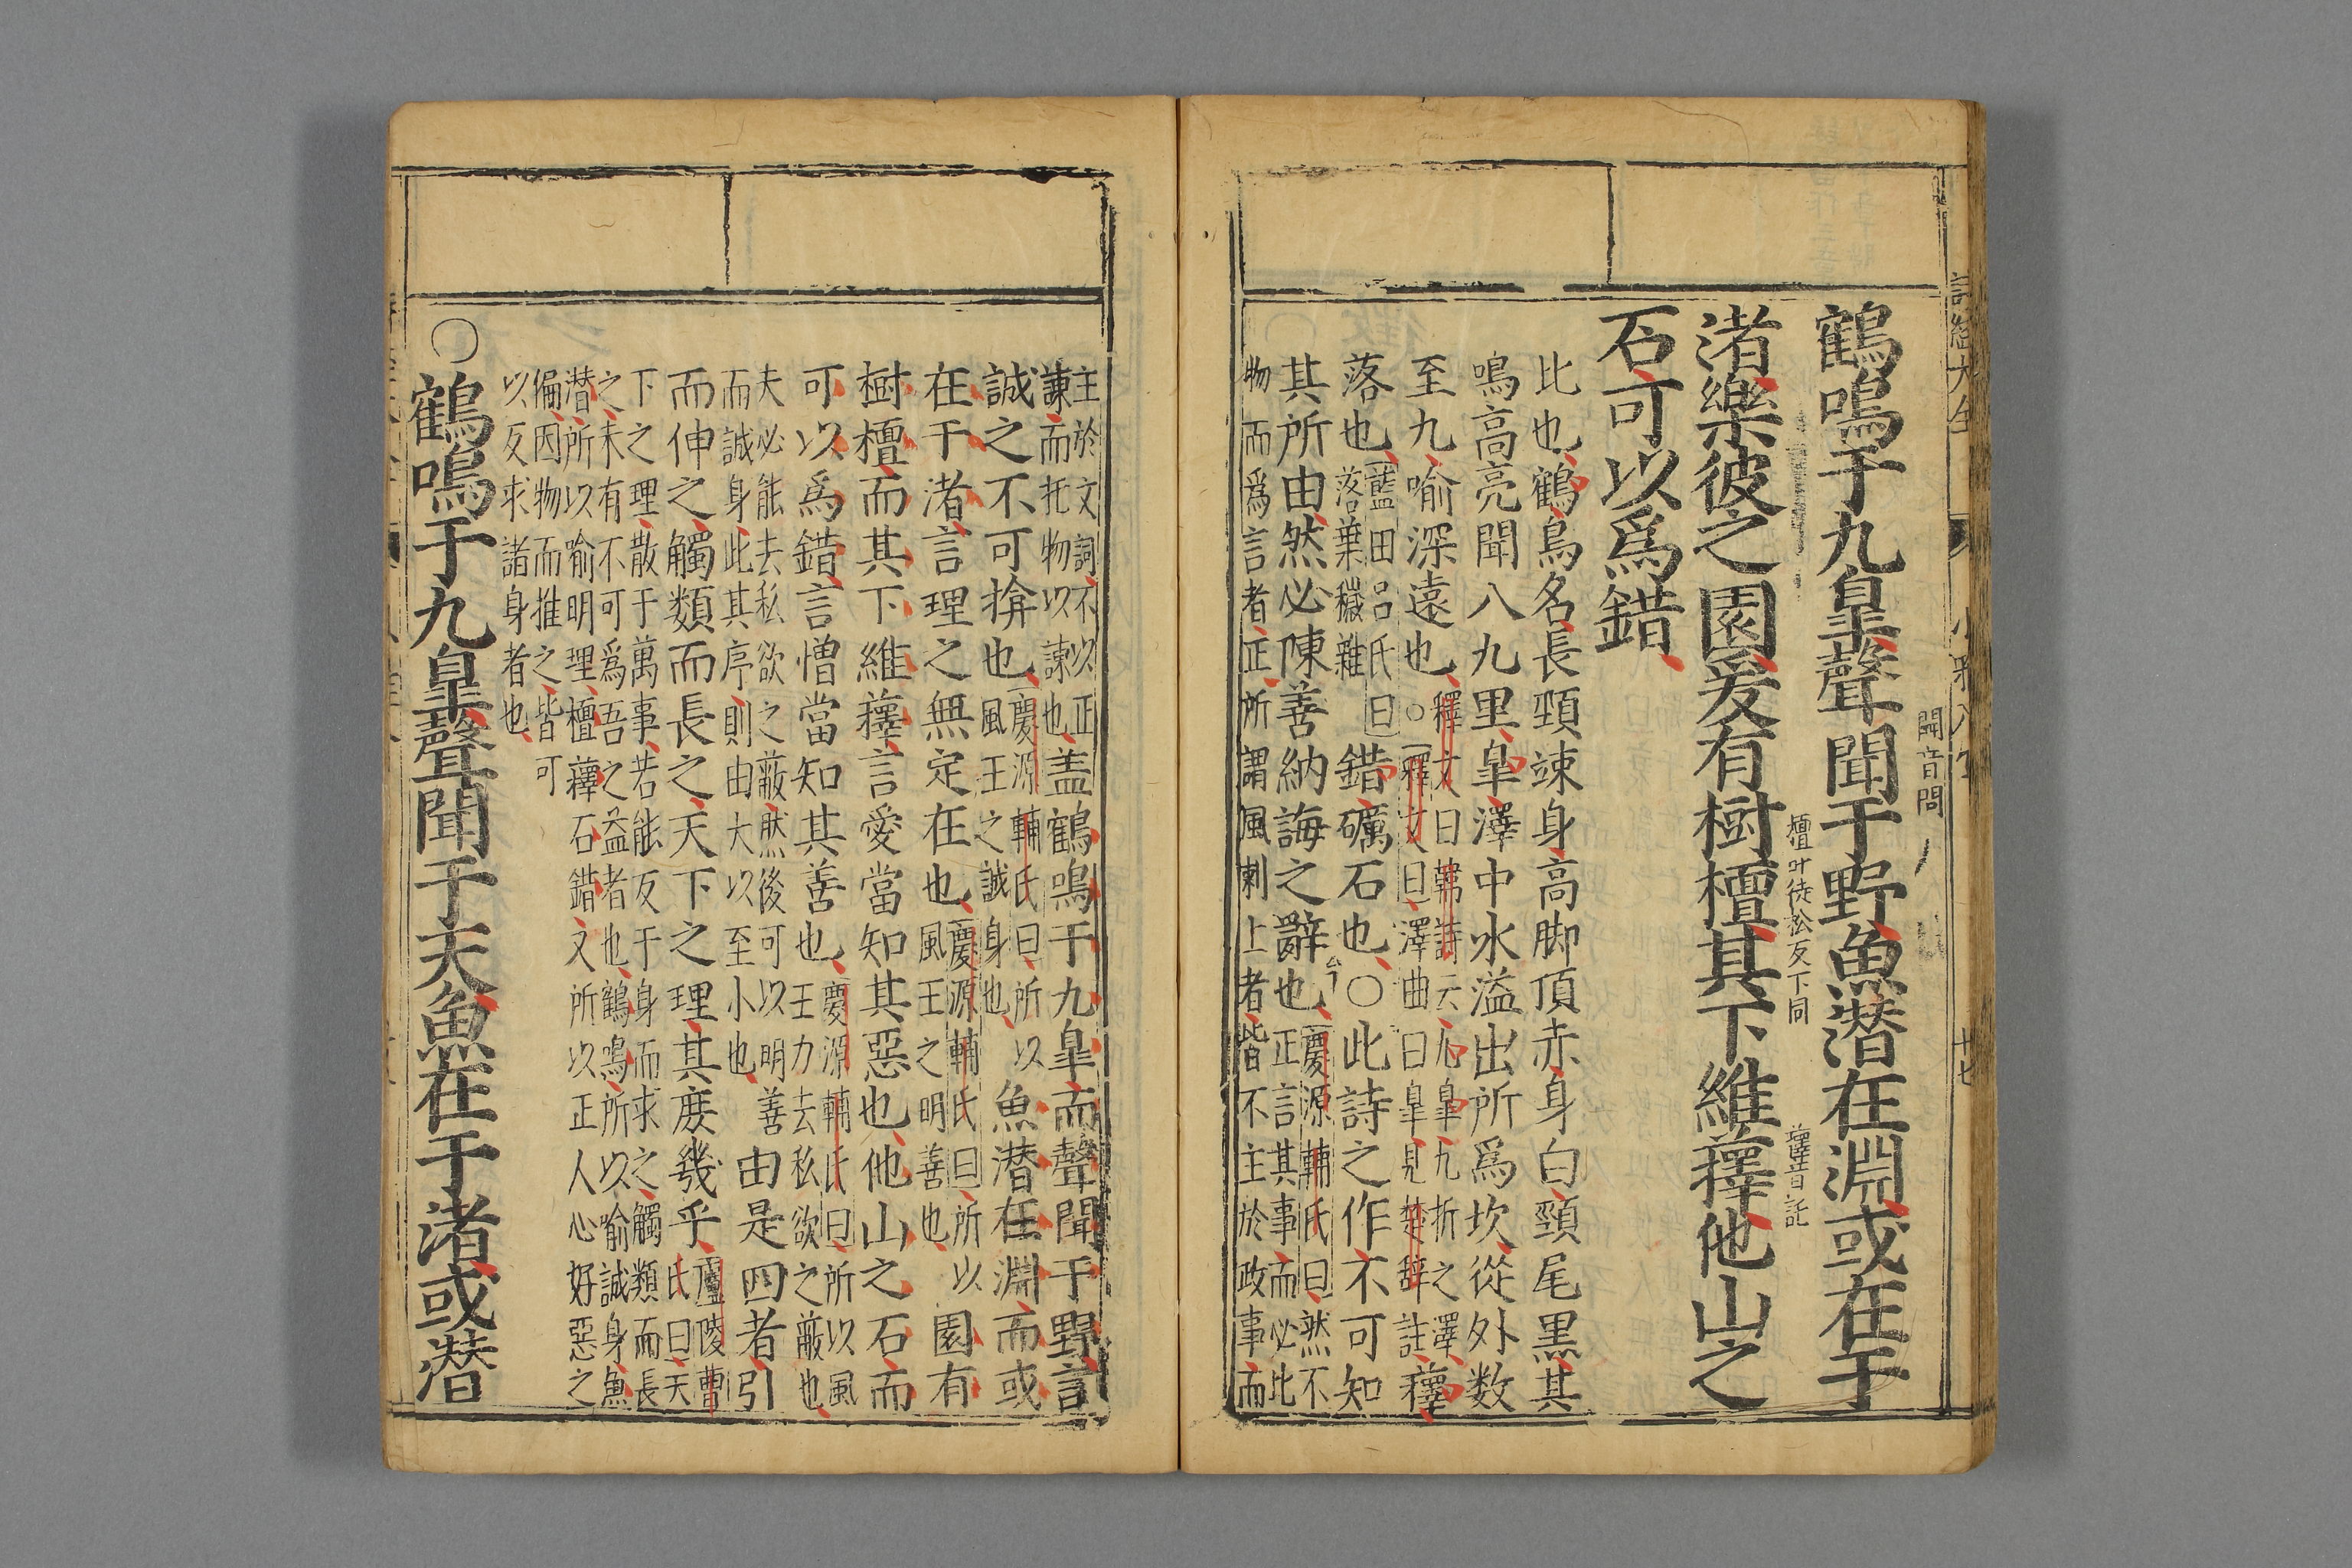 鶴鳴于九臯聲聞于野魚潛在淵或在于
聞音問
渚樂彼之園爰有樹檀其下維蘀他山之
檀叶徒松反下同
蘀音託
石可以爲錯
比也鶴鳥名長頸竦身高脚頂赤身白頸尾黑其
鳴高亮聞八九里臯澤中水溢出所爲坎從外数
至九喻深遠也
釋文曰韓詩云九臯九折之澤
○釋文曰澤曲曰臯見楚辭註
蘀
落也
藍田呂氏曰
落葉穢雜
錯礪石也○此詩之作不可知
其所由然必陳善納誨之辭也
慶源輔氏曰然不
正言其事而必比
物而爲言者正所謂風刺上者皆不主於政事而
主於文詞不以正
諫而托物以諫也
盖鶴鳴于九臯而聲聞于野言
誠之不可揜也
慶源輔氏曰所以
風王之誠身也
魚潛在淵而或
在于渚言理之無定在也
慶源輔氏曰所以
風王之明善也
園有
樹檀而其下維蘀言愛當知其惡也他山之石而
可以爲錯言憎當知其善也
慶源輔氏曰所以風
王力去私欲之蔽也
夫必能去私欲之蔽然後可以明善
而誠身此其序則由大以至小也
由是四者引
而伸之觸類而長之天下之理其庶幾乎
廬陵曹
氏曰天
下之理散于萬事若能反于身而求之觸類而長
之未有不可爲吾之益者也鶴鳴所以喻誠身魚
潛所以喻明理檀蘀石錯又所以正人心好惡之
偏因物而推之皆可
以反求諸身者也
○鶴鳴于九臯聲聞于天魚在于渚或潛